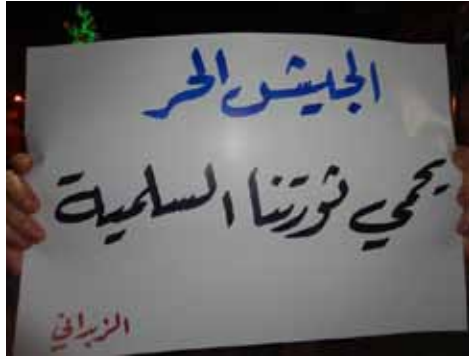 الجيش الحر
يحمي ثورتنا السلمية
الزبداني